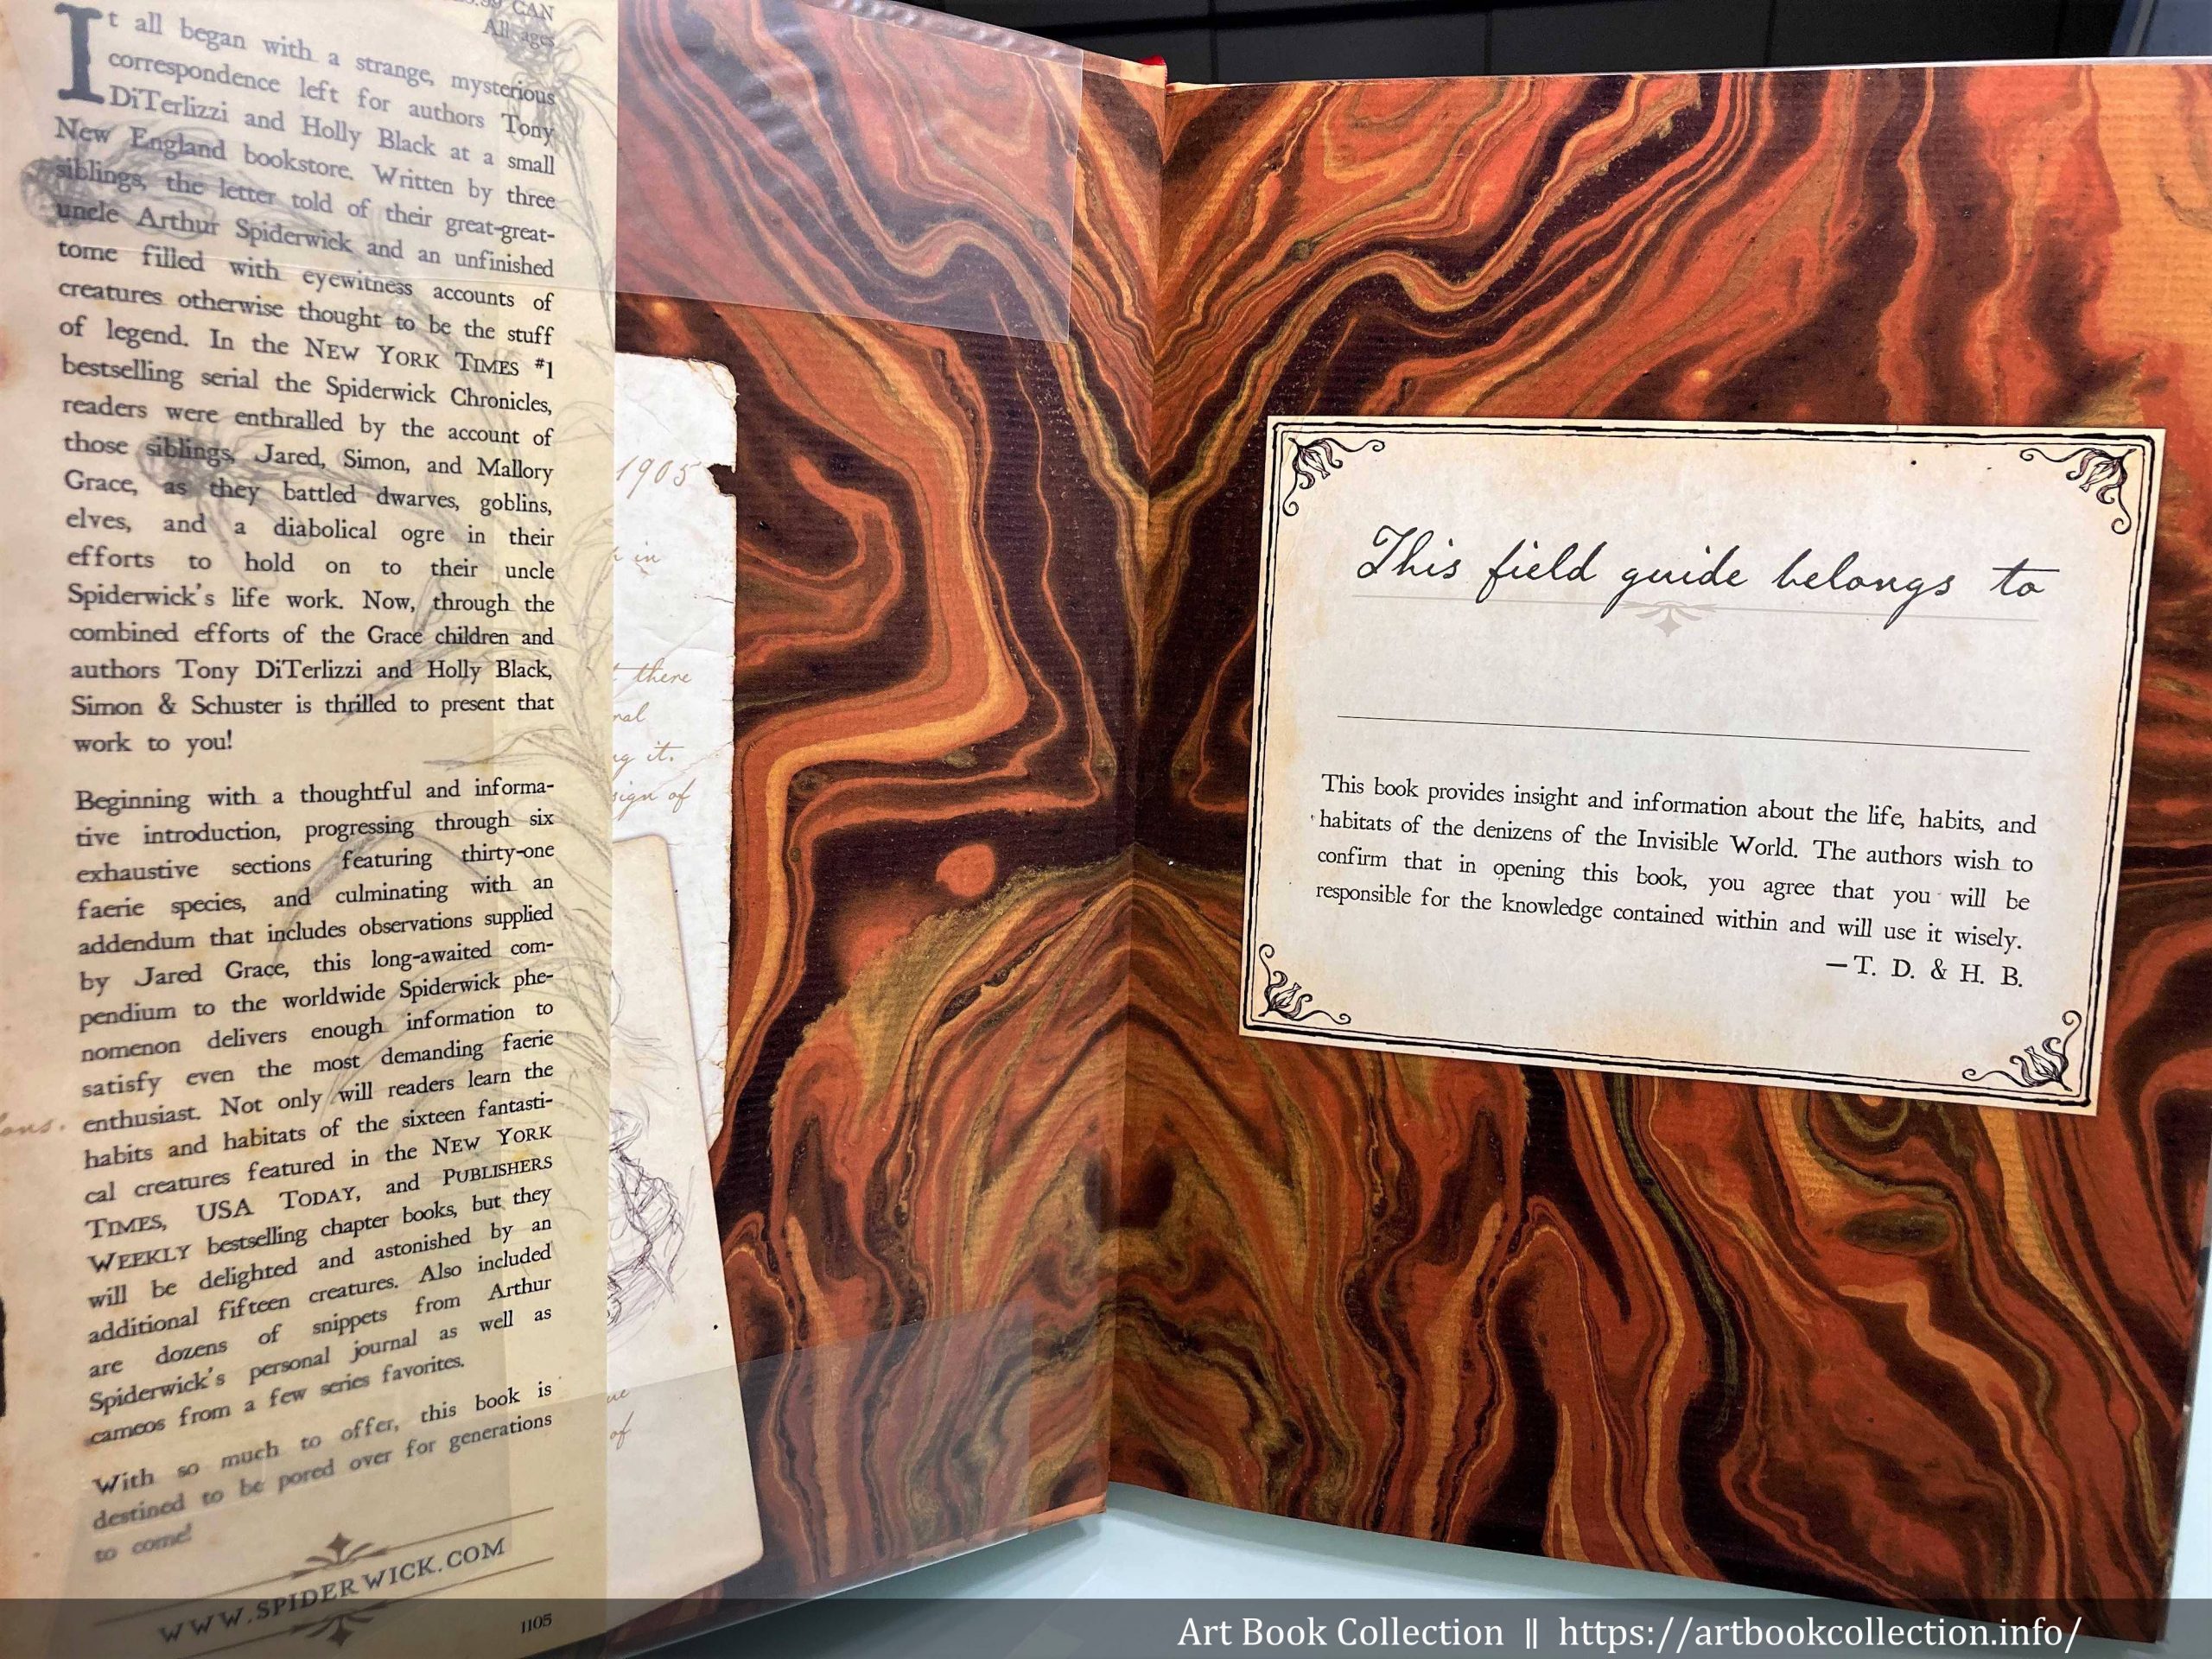 CAN
All ages
It all began with a strange, mysterious
correspondence left for authors Tony
DiTerlizzi and Holly Black at a small
New England bookstore. Written by three
siblings, the letter told of their great-great-
uncle Arthur Spiderwick and an unfinished
tome filled with eyewitness accounts of
creatures otherwise thought to be the stuff
of legend. In the NEW YORK TIMES #1
bestselling serial the Spiderwick Chronicles,
readers were enthralled by the account of
those siblings, Jared, Simon, and Mallory
Grace, as they battled dwarves, goblins,
elves, and a diabolical ogre in their
efforts to hold on to their uncle
Spiderwick's life work. Now, through the
combined efforts of the Grace children and
authors Tony DiTerlizzi and Holly Black,
Simon & Schuster is thrilled to present that
work to you!
Beginning with a thoughtful and informa-
tive introduction, progressing through six
exhaustive sections featuring thirty-one
faerie species, and culminating with an
addendum that includes observations supplied
by Jared Grace, this long-awaited com-
pendium to the worldwide Spiderwick phe-
nomenon delivers enough information to
satisfy even the most demanding faerie
enthusiast. Not only will readers learn the
habits and habitats of the sixteen fantasti-
cal creatures featured in the NEW YORK
TIMES, USA TODAY, and PUBLISHERS
WEEKLY bestselling chapter books, but they
will be delighted and astonished by an
additional fifteen creatures. Also included
are dozens of snippets from Arthur
Spiderwick's personal journal as well as
cameos from a few series favorites.
With so much to offer, this book is
destined to be pored over for generations
to come!
WWW.SPIDERWICK.COM
1105
1905
in
there
it.
of
of
This field guide belongs to
This book provides insight and information about the life, habits, and
habitats of the denizens of the Invisible World. The authors wish to
confirm that in opening this book, you agree that you will be
responsible for the knowledge contained within and will use it wisely.
—T. D. & H. B.
Art Book Collection || https://artbookcollection.info/